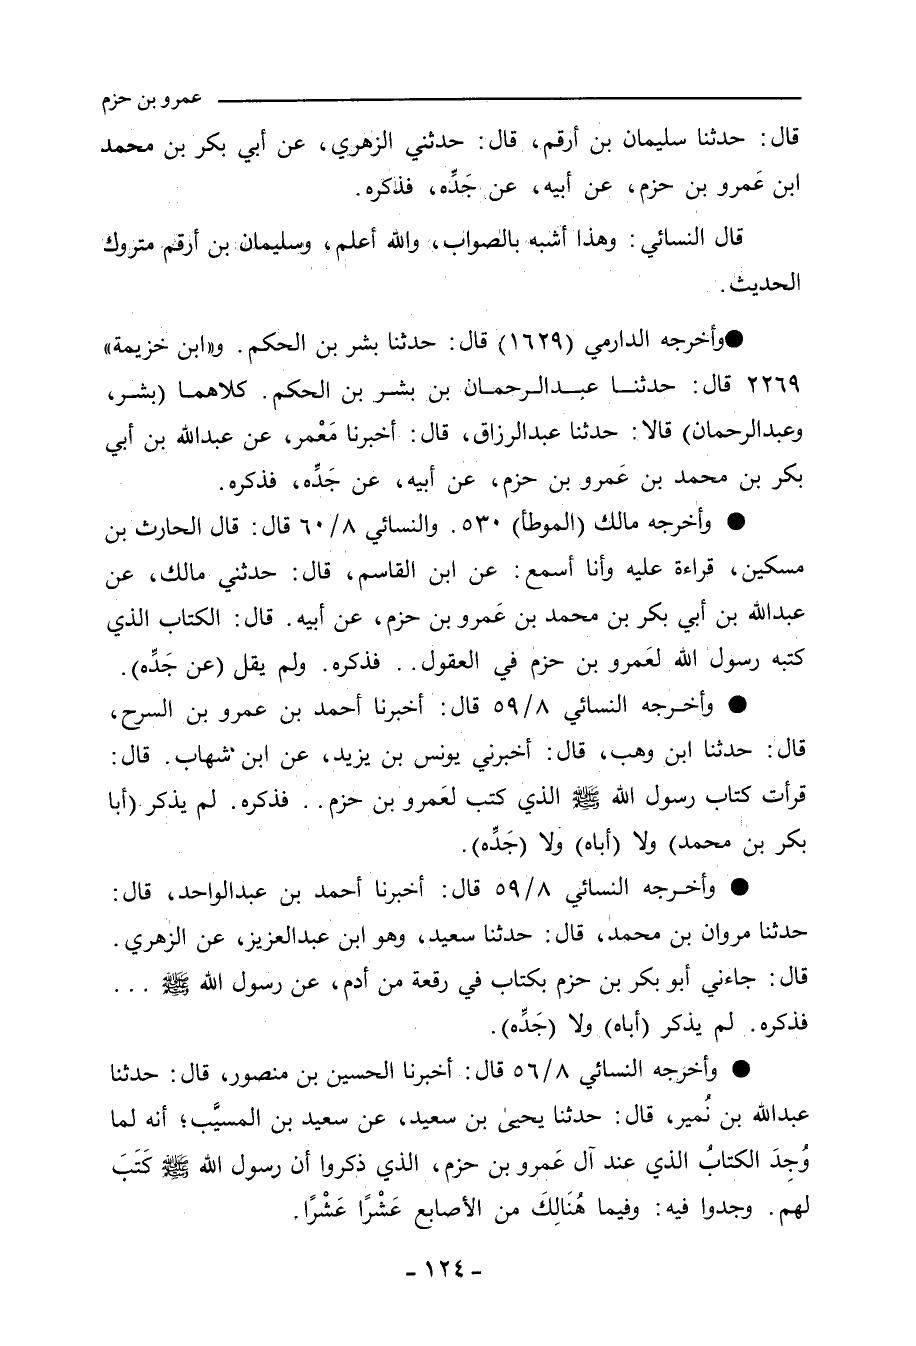 عمرو بن حزم
قال: حدثنا سليمان بن أرقم، قال: حدثني الزهري، عن أبي بكر بن محمد
ابن عَمرو بن حزم، عن أبيه، عن جَدِّه، فذكره.
قال النسائي: وهذا أشبه بالصواب، والله أعلم، وسليمان بن أرقم متروك
الحديث.
●وأخرجه الدارمي (١٦٢٩) قال: حدثنا بشر بن الحكم. و«ابن خزيمة»
٢٢٦٩ قال: حدثنا عبدالرحمان بن بشر بن الحكم. كلاهما (بشر،
وعبدالرحمان) قالا: حدثنا عبدالرزاق، قال: أخبرنا مَعْمر، عن عبدالله بن أبي
بكر بن محمد بن عَمرو بن حزم، عن أبيه، عن جَدِّه، فذكره.
● وأخرجه مالك (الموطأ) ٥٣٠. والنسائي ٦٠/٨ قال: قال الحارث بن
مسكين، قراءة عليه وأنا أسمع: عن ابن القاسم، قال: حدثني مالك، عن
عبدالله بن أبي بكر بن محمد بن عَمرو بن حزم، عن أبيه. قال: الكتاب الذي
كتبه رسول الله لعَمرو بن حزم في العقول.. فذكره. ولم يقل (عن جَدِّه).
● وأخرجه النسائي ٥٩/٨ قال: أخبرنا أحمد بن عمرو بن السرح،
قال: حدثنا ابن وهب، قال: أخبرني يونس بن يزيد، عن ابن شهاب. قال:
قرأت كتاب رسول الله ﷺ الذي كتب لعَمرو بن حزم.. فذكره. لم يذكر (أبا
بكر بن محمد) ولا (أباه) ولا (جَدِّه).
● وأخرجه النسائي ٥٩/٨ قال: أخبرنا أحمد بن عبدالواحد، قال:
حدثنا مروان بن محمد، قال: حدثنا سعيد، وهو ابن عبدالعزيز، عن الزهري.
قال: جاءني أبو بكر بن حزم بكتاب في رقعة من أدم، عن رسول الله ﷺ ...
فذكره. لم يذكر (أباه) ولا (جَدِّه).
● وأخرجه النسائي ٥٦/٨ قال: أخبرنا الحسين بن منصور، قال: حدثنا
عبدالله بن نُمير، قال: حدثنا يحيىٰ بن سعيد، عن سعيد بن المسيَّب؛ أنه لما
وُجِدَ الكتابُ الذي عند آل عَمرو بن حزم، الذي ذكروا أن رسول الله ﷺ كَتَبَ
لهم. وجدوا فيه: وفيما هُنَالِكَ من الأصابع عَشْرًا عَشْرًا.
- ١٢٤ -